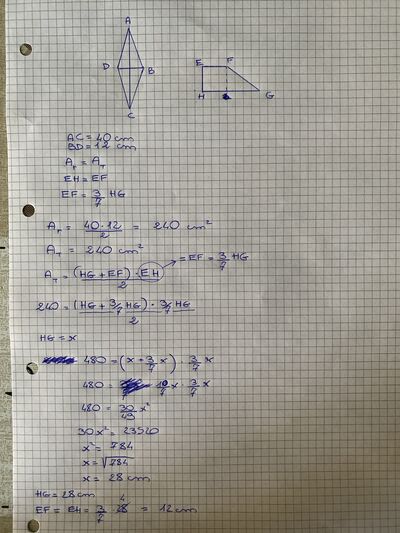 A
D B
C
E F
H G
AC = 40 cm
BD = 12 cm
A_r = A_T
EH = EF
EF = 3/7 HG
A_r = (40 · 12)/2 = 240 cm²
A_T = 240 cm²
A_T = ((HG + EF) · EH)/2 → = EF = 3/7 HG
240 = ((HG + 3/7 HG) · 3/7 HG)/2
HG = x
480 = (x + 3/7 x) · 3/7 x
480 = 10/7 x · 3/7 x
480 = 30/49 x²
30x² = 23520
x² = 784
x = √784
x = 28 cm
HG = 28 cm
EF = EH = 3/7 · 28 4 = 12 cm